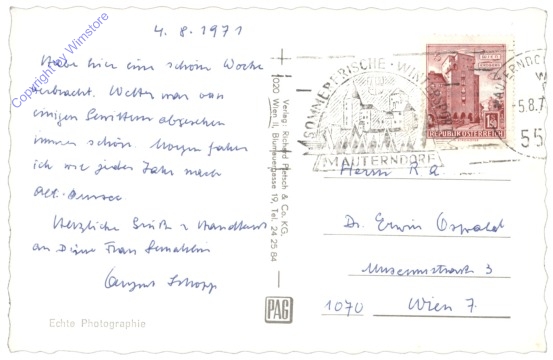 4.8.1971
Habe hier eine schöne Woche
verbracht. Wetter war von
einigen Gewittern abgesehen
immer schön. Morgen fahre
ich wie jedes Jahr nach
Alt-Aussee
Herzliche Grüße u Handkuss
an Deine Frau Gemahlin
August
Echte Photographie
Copyright by Wimstore
Verlag: Richard Pietsch & Co. KG.
1020 Wien II, Blumauergasse 19, Tel. 24 25 84
PAG
SOMMERFRISCHE · WINTERSPORT
MAUTERNDORF
WIEN
REPUBLIK ÖSTERREICH
1.50
MAUTERNDORF
-5.8.7
55
Herrn R a.
Dr. Erwin Oswald
Museumstrasse 3
1070 Wien 7.